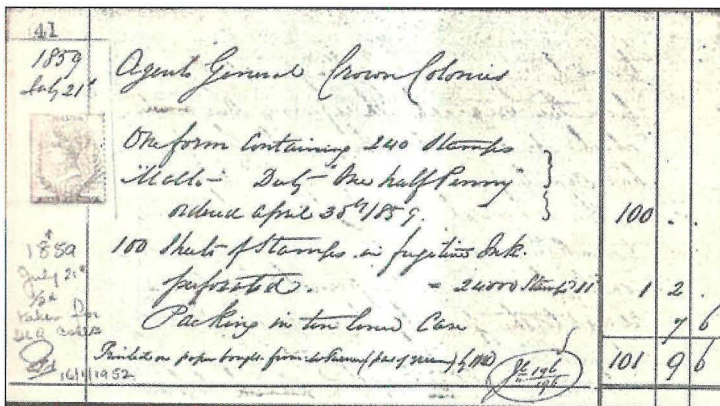 41
1859
July 21st
Agents General Crown Colonies
One form containing 240 Stamps
Malta - Duty "One half Penny"
ordered April 30th/1859.
100 . .
100 Sheets of Stamps in fugitive Ink.
perforated. = 24000 Stamps
1 2 .
Packing in tin lined Case
7 6
Printed on paper bought from
101 9 6
1859
July 21st
½d
taken for
DLR
16/1/1952